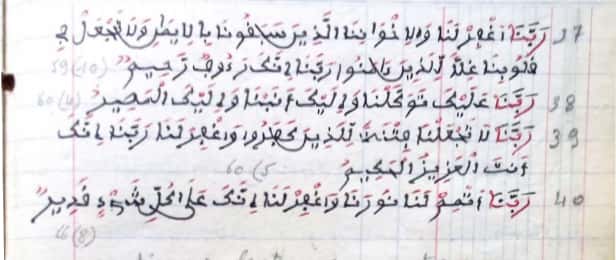 37 رَبَّنَا اغْفِرْ لَنَا وَلِإِخْوَانِنَا الَّذِينَ سَبَقُونَا بِالْإِيمَٰنِ وَلَا تَجْعَلْ فِي
قُلُوبِنَا غِلًّا لِّلَّذِينَ ءَامَنُوا رَبَّنَا إِنَّكَ رَءُوفٌ رَّحِيمٌ 59 (10)
38 رَبَّنَا عَلَيْكَ تَوَكَّلْنَا وَإِلَيْكَ أَنَبْنَا وَإِلَيْكَ الْمَصِيرُ 60 (4)
39 رَبَّنَا لَا تَجْعَلْنَا فِتْنَةً لِّلَّذِينَ كَفَرُوا وَاغْفِرْ لَنَا رَبَّنَا إِنَّكَ
أَنتَ الْعَزِيزُ الْحَكِيمُ 60 (5
40 رَبَّنَا أَتْمِمْ لَنَا نُورَنَا وَاغْفِرْ لَنَا إِنَّكَ عَلَى كُلِّ شَيْءٍ قَدِيرٌ
66 (8)